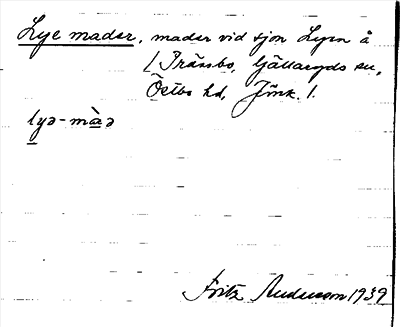 Lye mader, mader vid sjön Lyen å
/ Tränsbo, Gällaryds sn,
Östbo hd, Jönk. l.
lyə-màrə
Fritz Anderson 1939